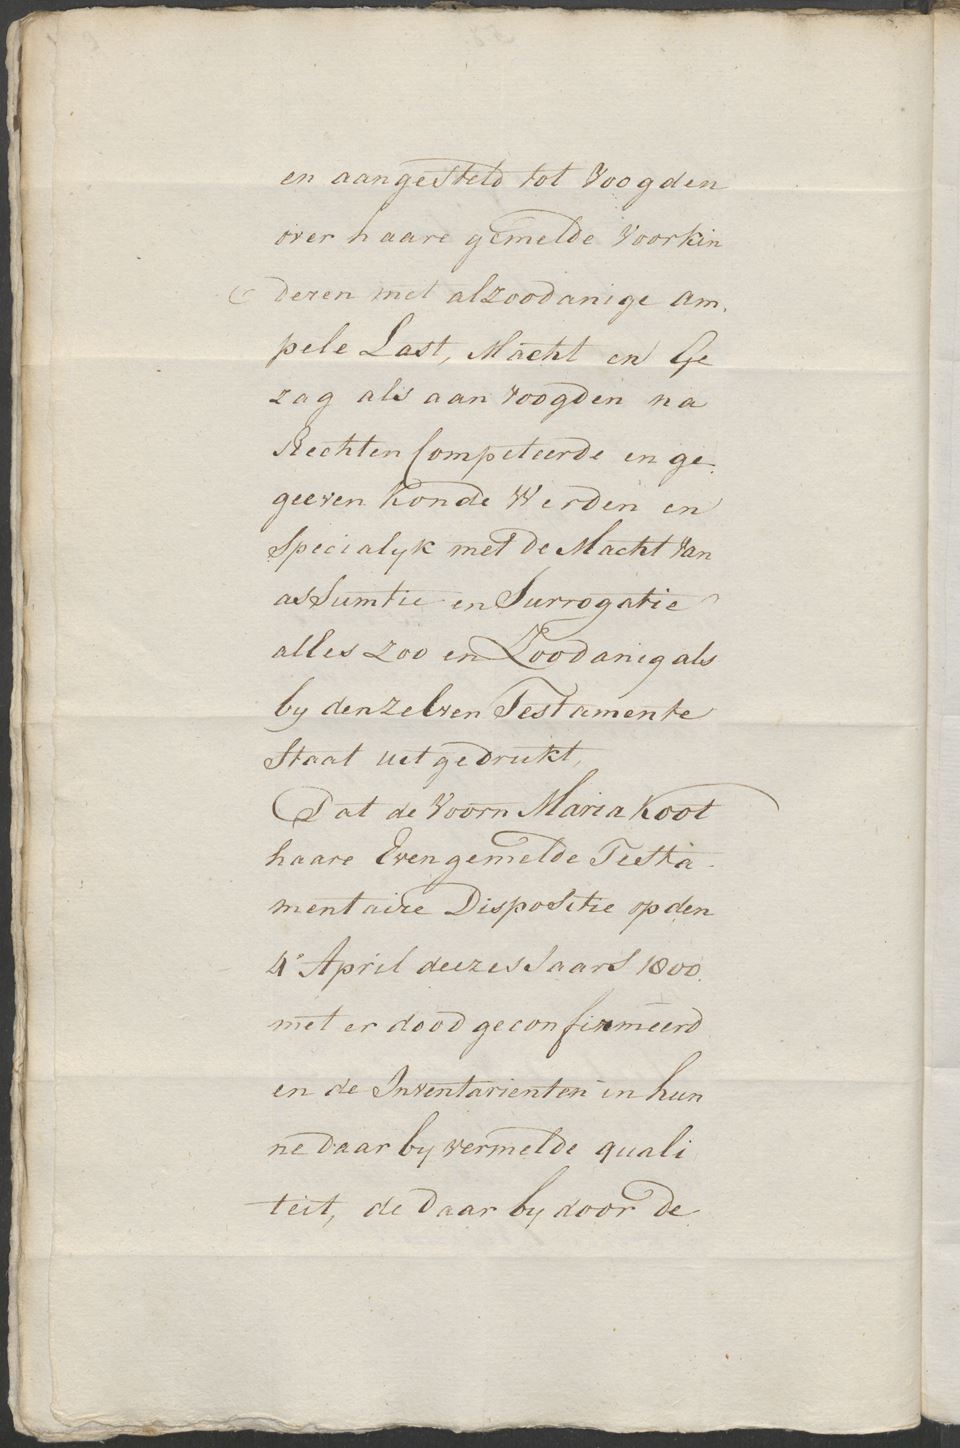 en aangesteld tot Voogden
over haare gemelde Voorkin
deren met alzoodanige am,
pele Last, Macht en Ge
zag als aan Voogden na
Rechten Competeerde en ge.
geeven konde Werden en
Specialyk met de Macht van
assumtie en Surrogatie
alles zoo en Zoodanig als
by denzelven Testamente
Staat uitgedrukt,
Dat de Voorn Maria Koot
haare Evengemelde Testa
mentaire Dispositie op den
4e April deezes Jaars 1800.
met er dood geconfirmeerd
en de Inventarienten in hun
ne daar by vermelde quali
teit, de daar by door de